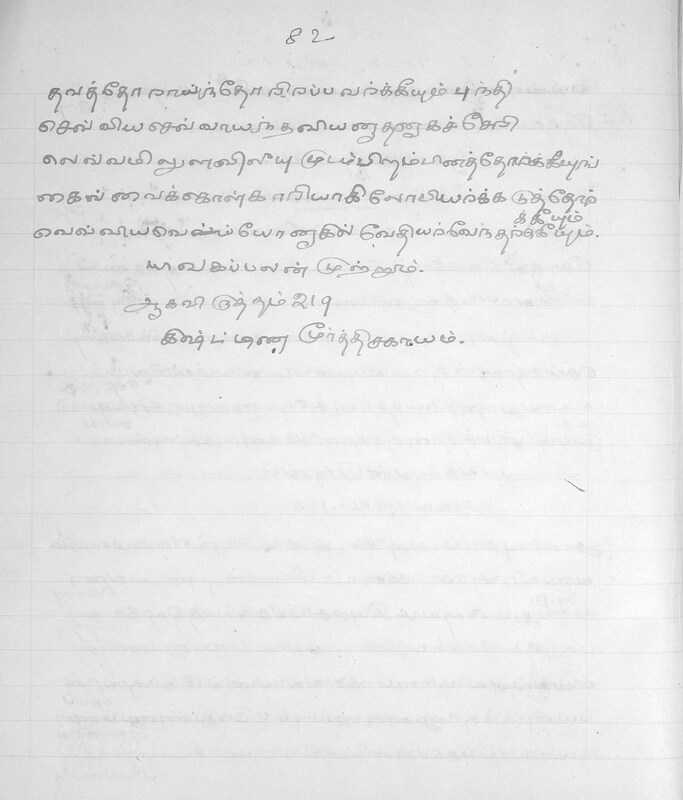 82
தவத்தோ ராய்ந்தோ ரிரப்பவர்க்கீயும் புந்தி
செவ்விய செவ்வாயந்தவியனுதனுகச் சேவி
லெவ்வமிலுளவிலீயு முடம்பிளம்பினத்தோர்க்கீயுங்
கைவ்வைக்கொள்காரியாகிலோமியர்க்கடுத்தோர்
க்கீயும்
வெவ்வியவெய்யோனுகில் வேதியர்வேந்தர்க்கீயும்.
யாவகப்பலன் முற்றும்.
ஆகவிடுத்தம் 219
கிஷ்டிணமூர்த்திசகாயம்.